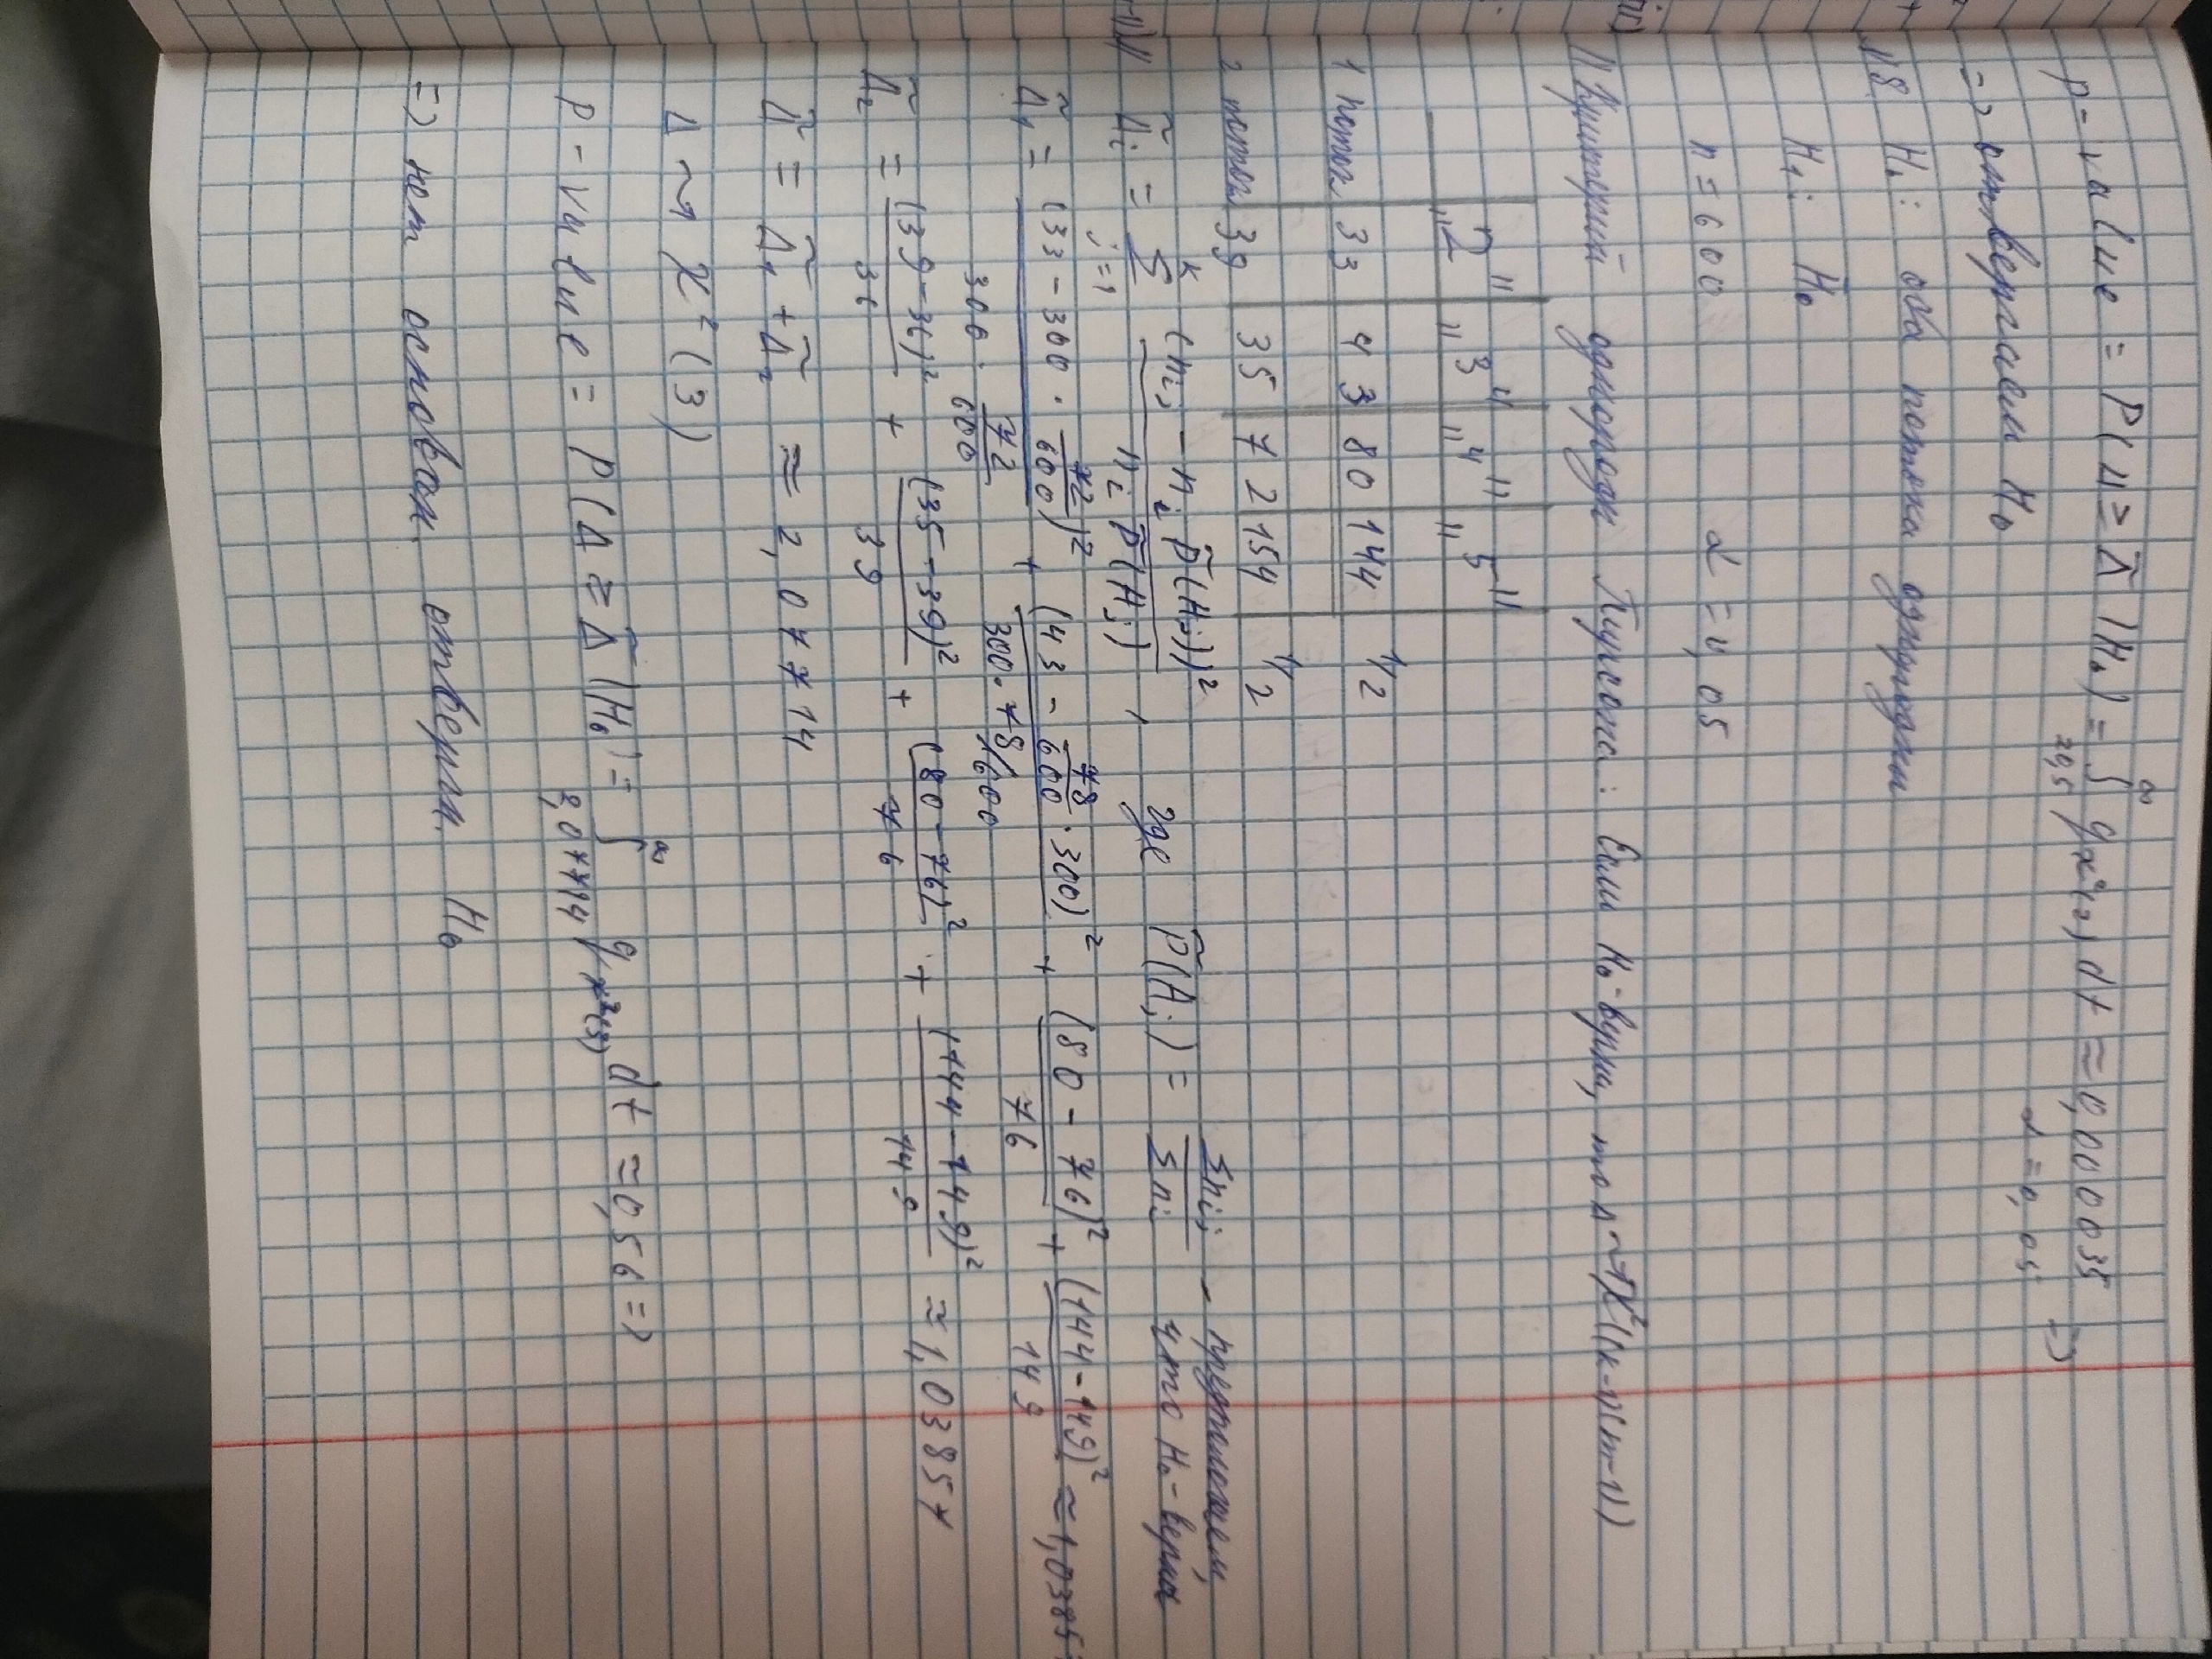 p-value = P(Δ ≥ Δ̃ | H₀) = ∫_{20,5}^{∞} q_{χ²(2)} dt ≈ 0,000035 =>
α = 0,05
=> отвергаем H₀
№8. H₀: оба потока однородны
H₁: H̄₀
n = 600 α = 0,05
// Критерий однородн Пирсона: Если H₀-верна, то Δ ⇝ χ²((k-1)(m-1))
„2" „3" „4" „5"
1 поток 33 43 80 144 1/2
2 поток 39 35 72 154 1/2
Δ̃ᵢ = Σ_{j=1}^{k} (nᵢⱼ - nᵢ P̃(Aⱼ))² / (nᵢ P̃(Aⱼ)), где P̃(Aⱼ) = Σnᵢⱼ / Σnᵢ - предполагаем, что H₀-верна
Δ̃₁ = (33 - 300 · 72/600)² / (300 · 72/600) + (43 - 78/600 · 300)² / (300 · 78/600) + (80 - 76)² / 76 + (144 - 149)² / 149 ≈ 1,03857
Δ̃₂ = (39 - 36)² / 36 + (35 - 39)² / 39 + (80 - 76)² / 76 + (144 - 149)² / 149 ≈ 1,03857
Δ̃ = Δ̃₁ + Δ̃₂ ≈ 2,07714
Δ ⇝ χ²(3)
P-value = P(Δ ≥ Δ̃ | H₀) = ∫_{2,07714}^{∞} q_{χ²(3)} dt ≈ 0,56 =>
=> нет основан. отвергн. H₀